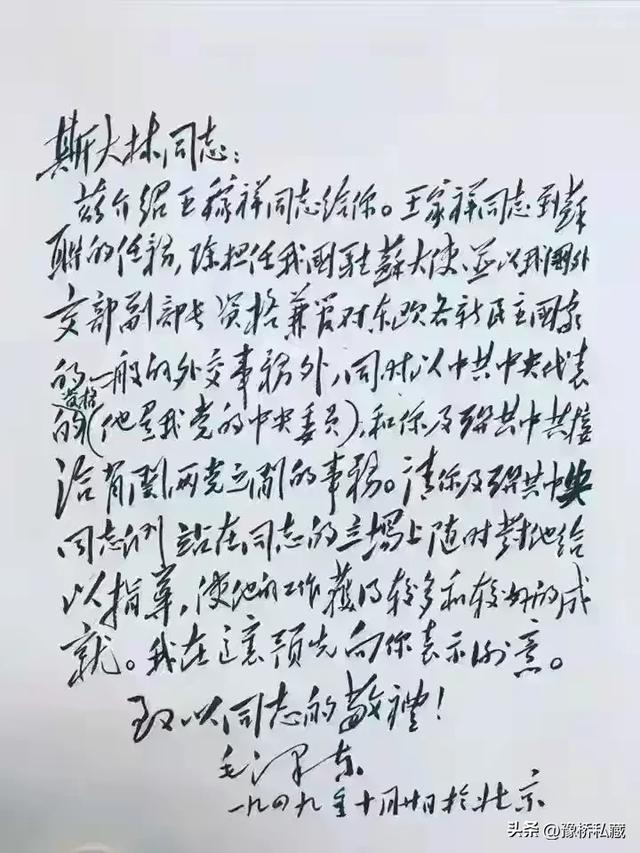 斯大林同志：
兹介绍王稼祥同志给你。王家祥同志到蘇
联的任務，除担任我國駐蘇大使、並以我國外
交部副部长資格兼管对东欧各新民主國家
的一般的外交事務外，同时以中共中央代表
資格
的(他是我党的中央委員)，和你及联共中央接
洽有關两党之間的事務。請你及联共中央
同志们站在同志的立場上随时對他給
以指導，使他的工作獲得较多和较好的成
就。我在這裏預先向你表示謝意。
致以同志的敬禮！
毛澤东
一九四九年十月廿日於北京
头条 @豫桥私藏